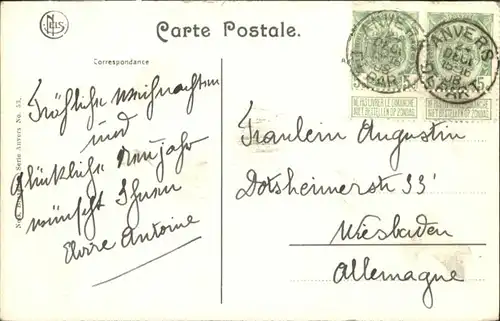 NELS
Carte Postale.
Correspondance
ANVERS
DEPART
5
ANVERS
DEPART
5
NE PAS LIVRER LE DIMANCHE
NIET BESTELLEN OP ZONDAG
NE PAS LIVRER LE DIMANCHE
NIET BESTELLEN OP ZONDAG
Fröhliche Weihnachten
und
Glückliche Neujahr
wünscht Ihnen
Elvire Antoine
Serie Anvers No.
Fraulein Augustin
Dotsheimerstr 33'
Wiesbaden
Allemagne